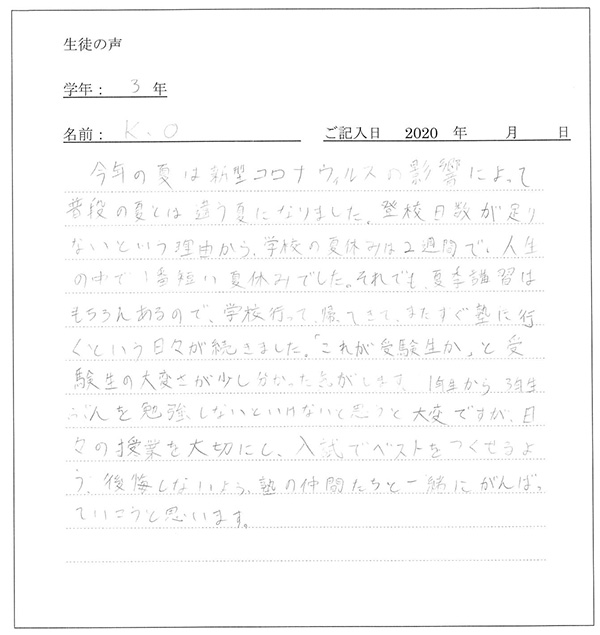 生徒の声
学年： 3 年
名前： K.O ご記入日 2020 年 月 日
今年の夏は新型コロナウィルスの影響によって
普段の夏とは違う夏になりました。登校日数が足り
ないという理由から、学校の夏休みは2週間で、人生
の中で1番短い夏休みでした。それでも、夏季講習は
もちろんあるので、学校行って、帰ってきて、またすぐ塾に行
くという日々が続きました。「これが受験生か」と受
験生の大変さが少し分かった気がします。1年生から3年生
ぶんを勉強しないといけないと思うと大変ですが、日
々の授業を大切にし、入試でベストをつくせるよ
う、後悔しないよう、塾の仲間たちと一緒にがんばっ
ていこうと思います。